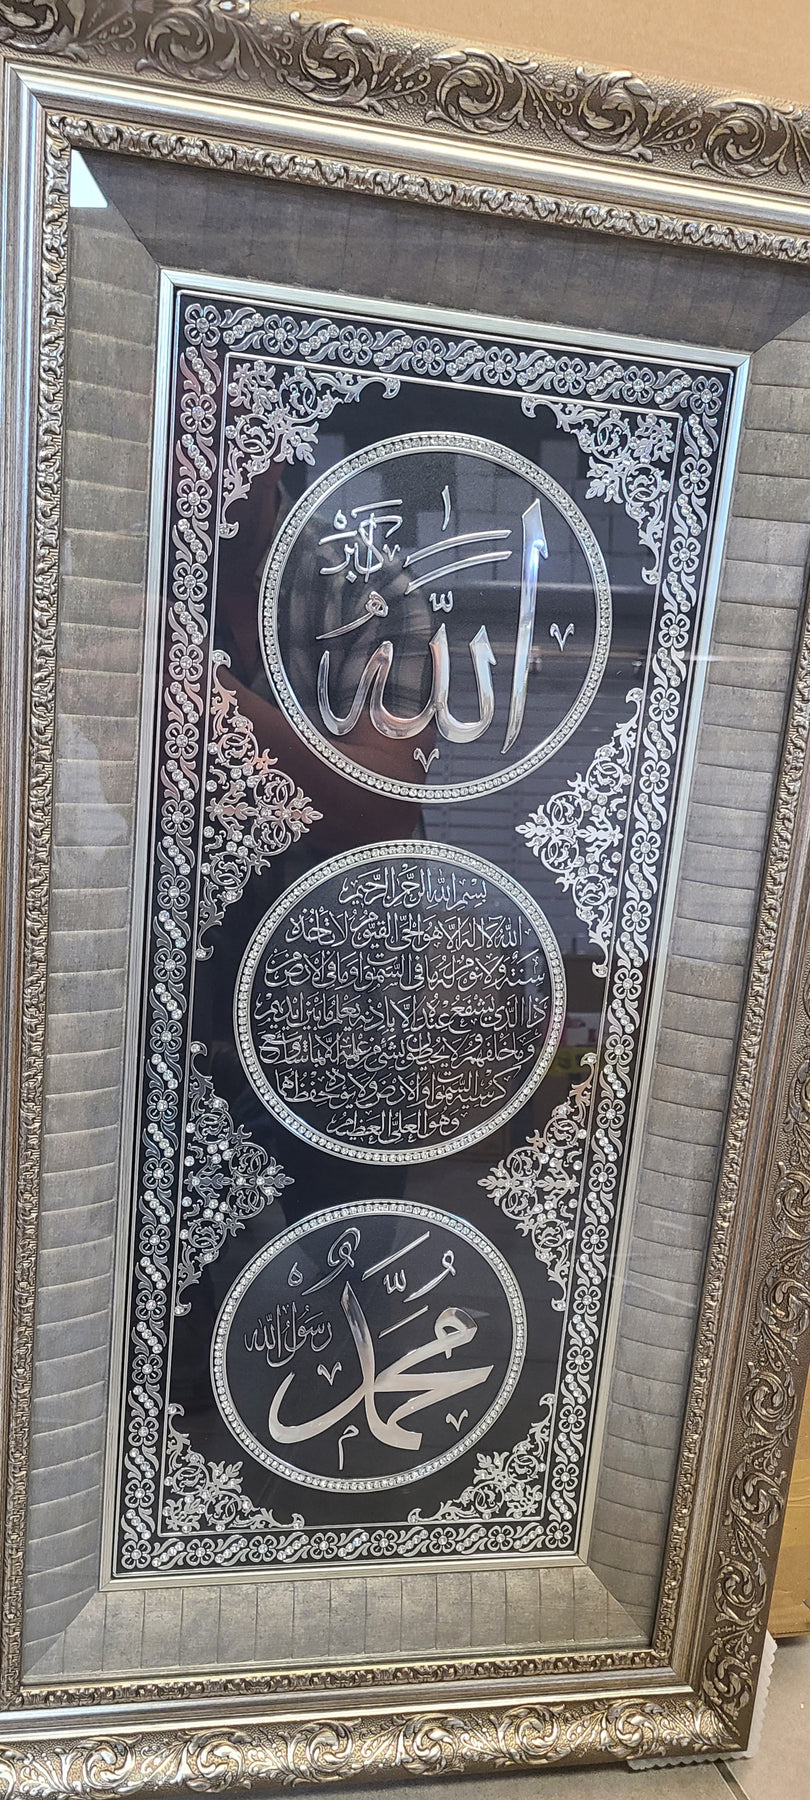 الله اكبر
بسم الله الرحمن الرحيم
الله لا اله الا هو الحي القيوم لا تأخذه
سنة ولا نوم له ما في السموات وما في الارض من
ذا الذي يشفع عنده الا باذنه يعلم ما بين ايديهم
وما خلفهم ولا يحيطون بشيء من علمه الا بما شاء وسع
كرسيه السموات والارض ولا يؤده حفظهما
وهو العلي العظيم
محمد
رسول الله